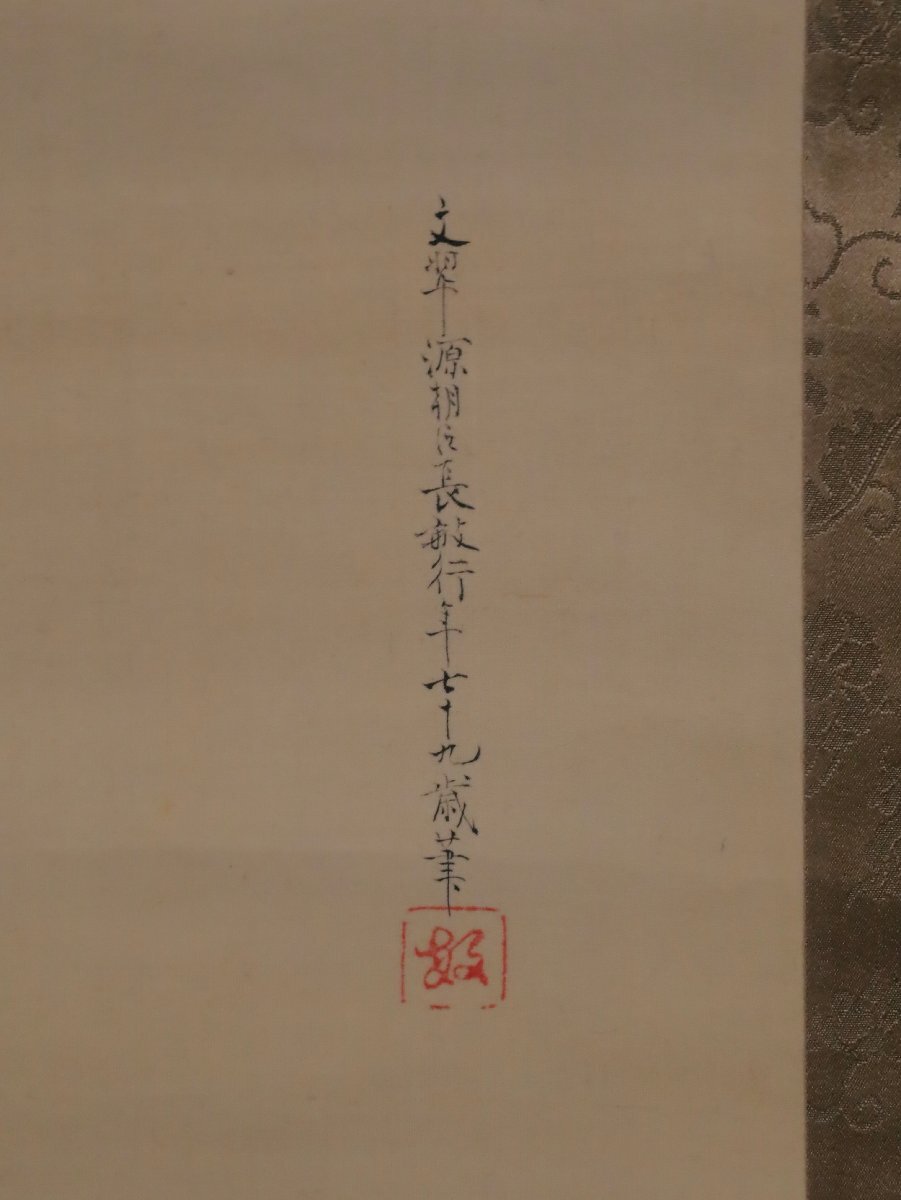 文翠源朝臣長敏行年七十九歳筆
敏